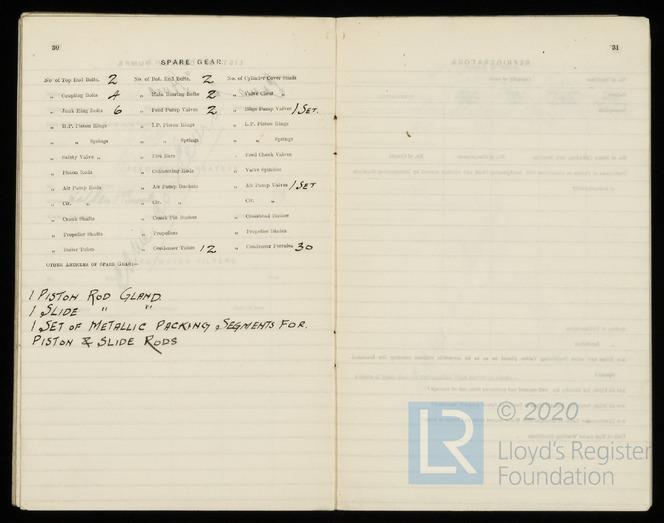 30
SPARE GEAR.
No of Top End Bolts. 2 No. of Bot. End Bolts. 2 No. of Cylinder Cover Studs
„ Coupling Bolts 4 „ Main Bearing Bolts 2 „ Valve Chest „
„ Junk Ring Bolts 6 „ Feed Pump Valves 2 „ Bilge Pump Valves 1 SET.
„ H.P. Piston Rings „ I.P. Piston Rings „ L.P. Piston Rings
„ „ Springs „ „ Springs „ „ Springs
„ Safety Valve „ „ Fire Bars „ Feed Check Valves
„ Piston Rods „ Connecting Rods „ Valve Spindles
„ Air Pump Rods „ Air Pump Buckets „ Air Pump Valves 1 SET
„ Cir. „ „ Cir. „ Cir. „
„ Crank Shafts „ Crank Pin Bushes „ Crosshead Bushes
„ Propeller Shafts „ Propellers „ Propeller Blades
„ Boiler Tubes „ Condenser Tubes 12 „ Condenser Ferrules 30
OTHER ARTICLES OF SPARE GEAR:—
1 PISTON ROD GLAND.
1 SLIDE " "
1 SET OF METALLIC PACKING SEGMENTS FOR.
PISTON & SLIDE RODS
31
LR © 2020
Lloyd's Register
Foundation